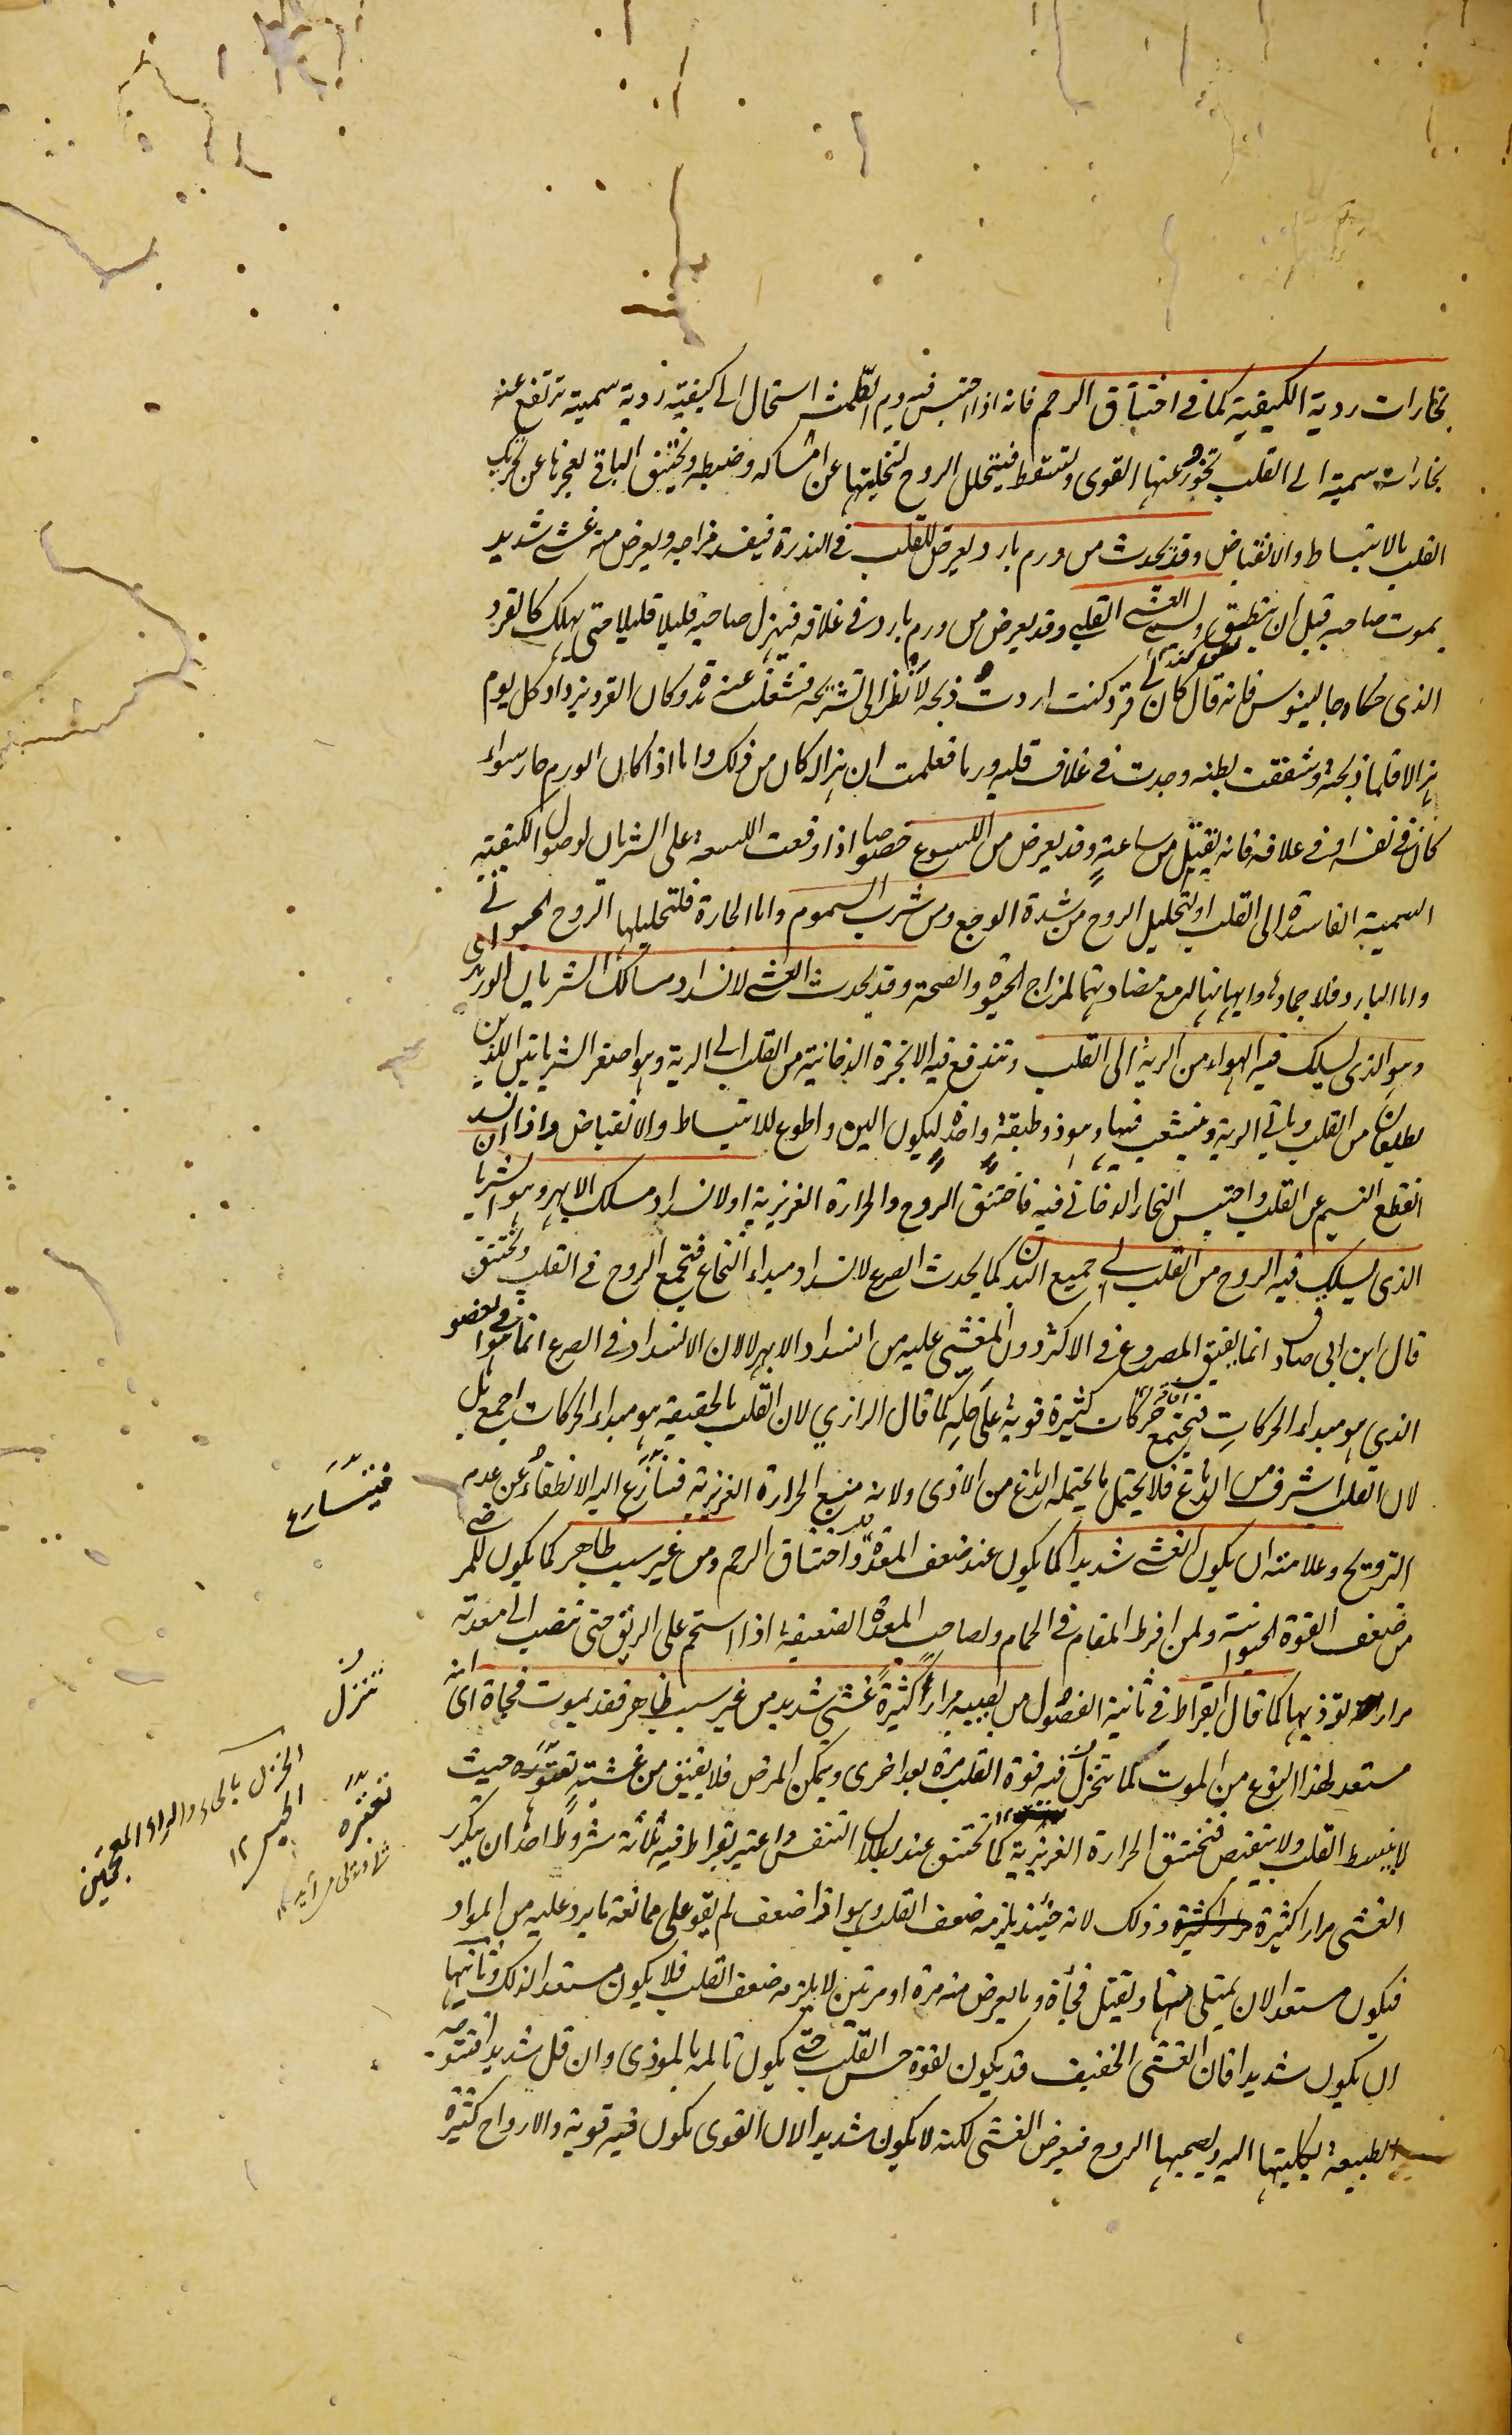 بخارات ردية الكيفية كما فى اختناق الرحم فانه اذا احتبس فيه دم الطمث استحال الى كيفية ردية سمية ترتفع عنه
بخارات سمية الى القلب تخور عنها القوى وتسقط فيتحلل الروح لتخليتها عن امساكه وضبطه ويختنق الباقى لعجزها عن تحريك
القلب بالانبساط والانقباض وقد يحدث من ورم بارد يعرض للقلب فى الندرة فيفسد مزاجه ويعرض منه غشى شديد
يموت صاحبه قبل ان ينطيق ولسمى الغشى القلبى وقد يعرض من ورم بارد فى غلافه فيهزل صاحبه قليلا قليلا حتى يهلك كالقرد
الذى حكاه جالينوس فانه قال كان لى قرد كنت اردت ذبحه لانظر الى تشريحه فشغلت عنه مدة وكان القرد يزداد كل يوم
هزالا فلما ذبحته وشققت بطنه وجدت فى غلاف قلبه ورما فعلمت ان هزاله كان من ذلك واما اذا كان الورم حارا سواء
كان فى نفسه او فى غلافه فانه يقتل من ساعته وقد يعرض من اللسوع خصوصا اذا وقعت اللسعة على الشريان لوصول الكيفية
السمية الفاسدة الى القلب او لتحليل الروح من شدة الوجع ومن شرب السموم واما الحارة فلتحليلها الروح الحيوانى
واما البارد فلاجماده وايهانها له مع مضادتها لمزاج الحيوة والصحة وقد يحدث الغشى لانسداد مسالك الشريان الوريدى
وهو الذى يسلك فيه الهواء من الرية الى القلب وتندفع فيه الابخرة الدخانية من القلب الى الرية وهو اصغر الشريانين اللذين
يطلعان من القلب وياتى الرية ويتشعب فيها وهو ذو طبقة واحدة ليكون الين واطوع للانبساط والانقباض واذا انسد
انقطع النسيم عن القلب واحتبس البخار الدخانى فيه فاختنق الروح والحرارة الغريزية او لانسداد مسلك الابهر وهو الشريان
الذى يسلك فيه الروح من القلب الى جميع البدن كما يحدث الصرع لانسداد مبداء النخاع فتجمع الروح فى القلب ويختنق
قال ابن ابى صادق انما يفيق المصروع فى الاكثر دون المغشى عليه من انسداد الابهر لا لان الانسداد فى الصرع انما هو فى العضو
الذى هو مبداء الحركات فيجتمع حركات كثيرة قوية على حله كما قال الرازي لان القلب بالحقيقة هو مبداء الحركات اجمع بل
لان القلب اشرف من الدماغ فلا يحتمل ما يحتمله الدماغ من الاذى ولانه منبع الحرارة الغريزية فتنازع اليه الانطفاء عن عدم
الترويح وعلامته ان يكون الغشى شديدا كما يكون عند ضعف المعدة واختناق الرحم ومن غير سبب ظاهر كما يكون للمرضى
من ضعف القوة الحيوانية ولمن افرط المقام فى الحمام ولصاحب المعدة الضعيفة اذا استحم على الريق حتى تنصب الى معدته
مرار تؤذيها كما قال ابقراط فى ثانية الفصول من يصيبه مرارا كثيرة غشى شديد من غير سبب ظاهر فقد يموت فجاة اى انه
مستعد لهذا النوع من الموت كما تتخزل فيه قوة القلب مرة بعد اخرى ويمكن المرض فلا يفيق من غشيته حيث
لا ينبسط القلب ولا ينقبض فتختنق الحرارة الغريزية كما تختنق عند بطلان التنفس واعتبر بقراط فيه ثلثة شروط احدها ان يتكرر
الغشى مرارا كثيرة وذلك لانه حينئذ يلزمه ضعف القلب وهو اذا ضعف لم يقو على ممانعة ما يرد عليه من المواد
فيكون مستعدا لان يمتلى منها ويقتل فجأة وما يعرض منه مرة او مرتين لا يلزمه ضعف القلب فلا يكون مستعدا لذلك وثانيها
ان يكون شديدا فان الغشى الخفيف قد يكون لقوة حس القلب حتى يكون تالمه بالموذى وان قل شديدا فتتوجه
الطبيعة بكليتها اليه ويصحبها الروح فيعرض الغشى لكنه لا يكون شديدا لان القوى يكون فيه قوية والارواح كثيرة
فيتسارع
تنزل
الخزل بالحاء والزاء المعجمتين
الحبس ۱۲
تعثره